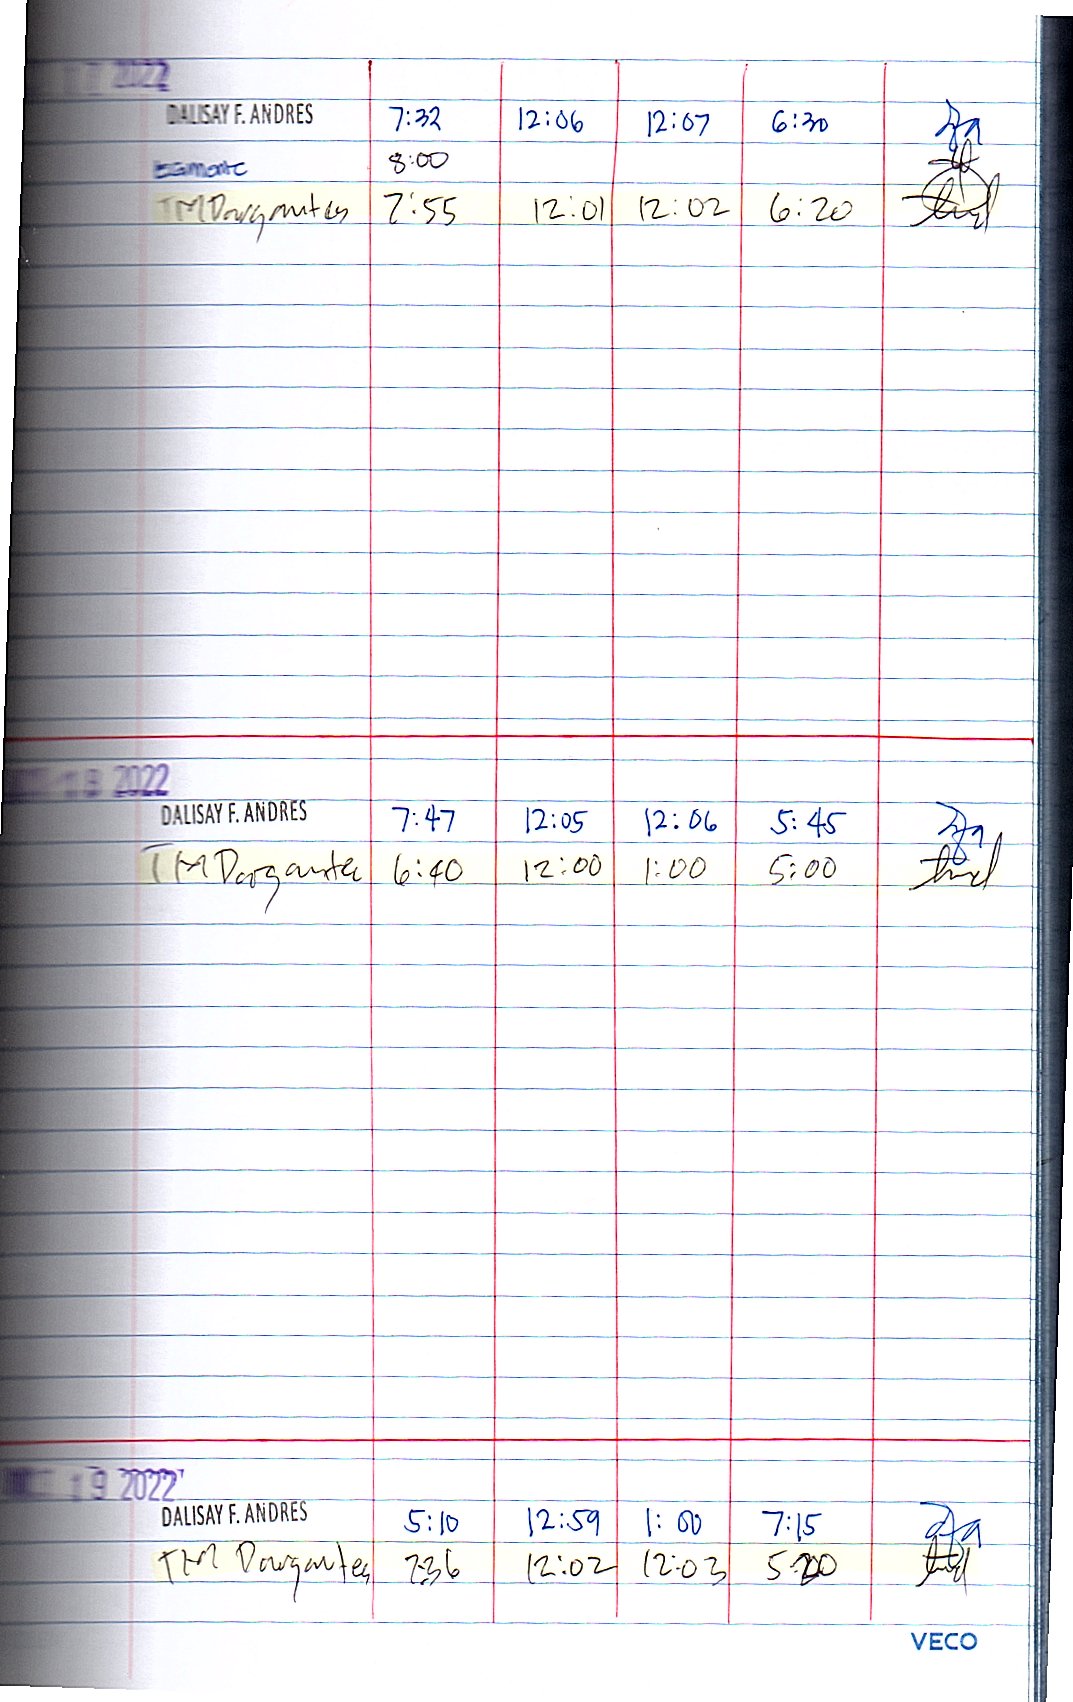 17 2022
DALISAY F. ANDRES 7:32 12:06 12:07 6:30
8:00
TM Dargantes 7:55 12:01 12:02 6:20
18 2022
DALISAY F. ANDRES 7:47 12:05 12:06 5:45
TM Dargantes 6:40 12:00 1:00 5:00
19 2022
DALISAY F. ANDRES 5:10 12:59 1:00 7:15
TM Dargantes 7:36 12:02 12:03 5:20
VECO